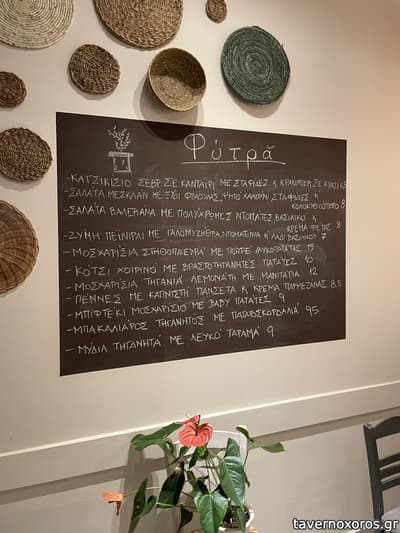 Φύτρα
- ΚΑΤΣΙΚΙΣΙΟ ΣΕΒΡ ΣΕ ΚΑΝΤΑΪΦΙ ΜΕ ΣΤΑΦΙΔΕΣ Κ ΚΡΑΝΜΠΕΡΙ ΣΕ
- ΣΑΛΑΤΑ ΜΕΣΚΛΑΝ ΜΕ ΞΥΔΙ ΦΡΑΟΥΛΑΣ, ΨΗΤΟ ΧΑΛΟΥΜΙ ΣΤΑΦΙΔΕΣ Κ
ΚΟΛΟΚΥΘΟΣΠΟΡΟ 8
- ΣΑΛΑΤΑ ΒΑΛΕΡΙΑΝΑ ΜΕ ΠΟΛΥΧΡΩΜΕΣ ΝΤΟΜΑΤΕΣ ΒΑΣΙΛΙΚΟ Κ
ΚΡΕΜΑ ΦΕΤΑΣ 8
- ΖΥΜΗ ΠΕΪΝΙΡΛΙ ΜΕ ΓΑΛΟΜΥΖΗΘΡΑ, ΝΤΟΜΑΤΙΝΙΑ Κ ΛΑΔΙ ΒΑΣΙΛΙΚΟΥ 7
- ΜΟΣΧΑΡΙΣΙΑ ΣΤΗΘΟΠΛΕΥΡΑ ΜΕ ΠΟΥΡΕ ΓΛΥΚΟΠΑΤΑΤΑΣ 15
- ΚΟΤΣΙ ΧΟΙΡΙΝΟ ΜΕ ΒΡΑΣΤΟΤΗΓΑΝΗΤΕΣ ΠΑΤΑΤΕΣ 10
- ΜΟΣΧΑΡΙΣΙΑ ΤΗΓΑΝΙΑ ΛΕΜΟΝΑΤΗ ΜΕ ΜΑΝΙΤΑΡΙΑ 12
- ΠΕΝΝΕΣ ΜΕ ΚΑΠΝΙΣΤΗ ΠΑΝΣΕΤΑ Κ ΚΡΕΜΑ ΠΑΡΜΕΖΑΝΑΣ 8.5
- ΜΠΙΦΤΕΚΙ ΜΟΣΧΑΡΙΣΙΟ ΜΕ BABY ΠΑΤΑΤΕΣ 9
- ΜΠΑΚΑΛΙΑΡΟΣ ΤΗΓΑΝΗΤΟΣ ΜΕ ΠΑΤΑΤΟΣΚΟΡΔΑΛΙΑ 9.5
- ΜΥΔΙΑ ΤΗΓΑΝΗΤΑ ΜΕ ΛΕΥΚΟ ΤΑΡΑΜΑ 9
tavernoxoros.gr